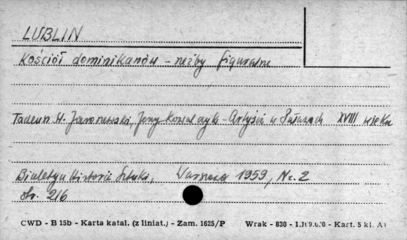 LUBLIN
Kościół dominikanów - rzeźby figuralne
Tadeusz H. Jaroszewski, Jerzy Kowalczyk - Artyści w Puławach XVIII wieku
Biuletyn Historii Sztuki, Warszawa 1959, Nr. 2
Str. 216
CWD - B 15b - Karta katal. (z liniat.) - Zam. 1625/P Wrak - 830 - Kart. 5 kl. A1